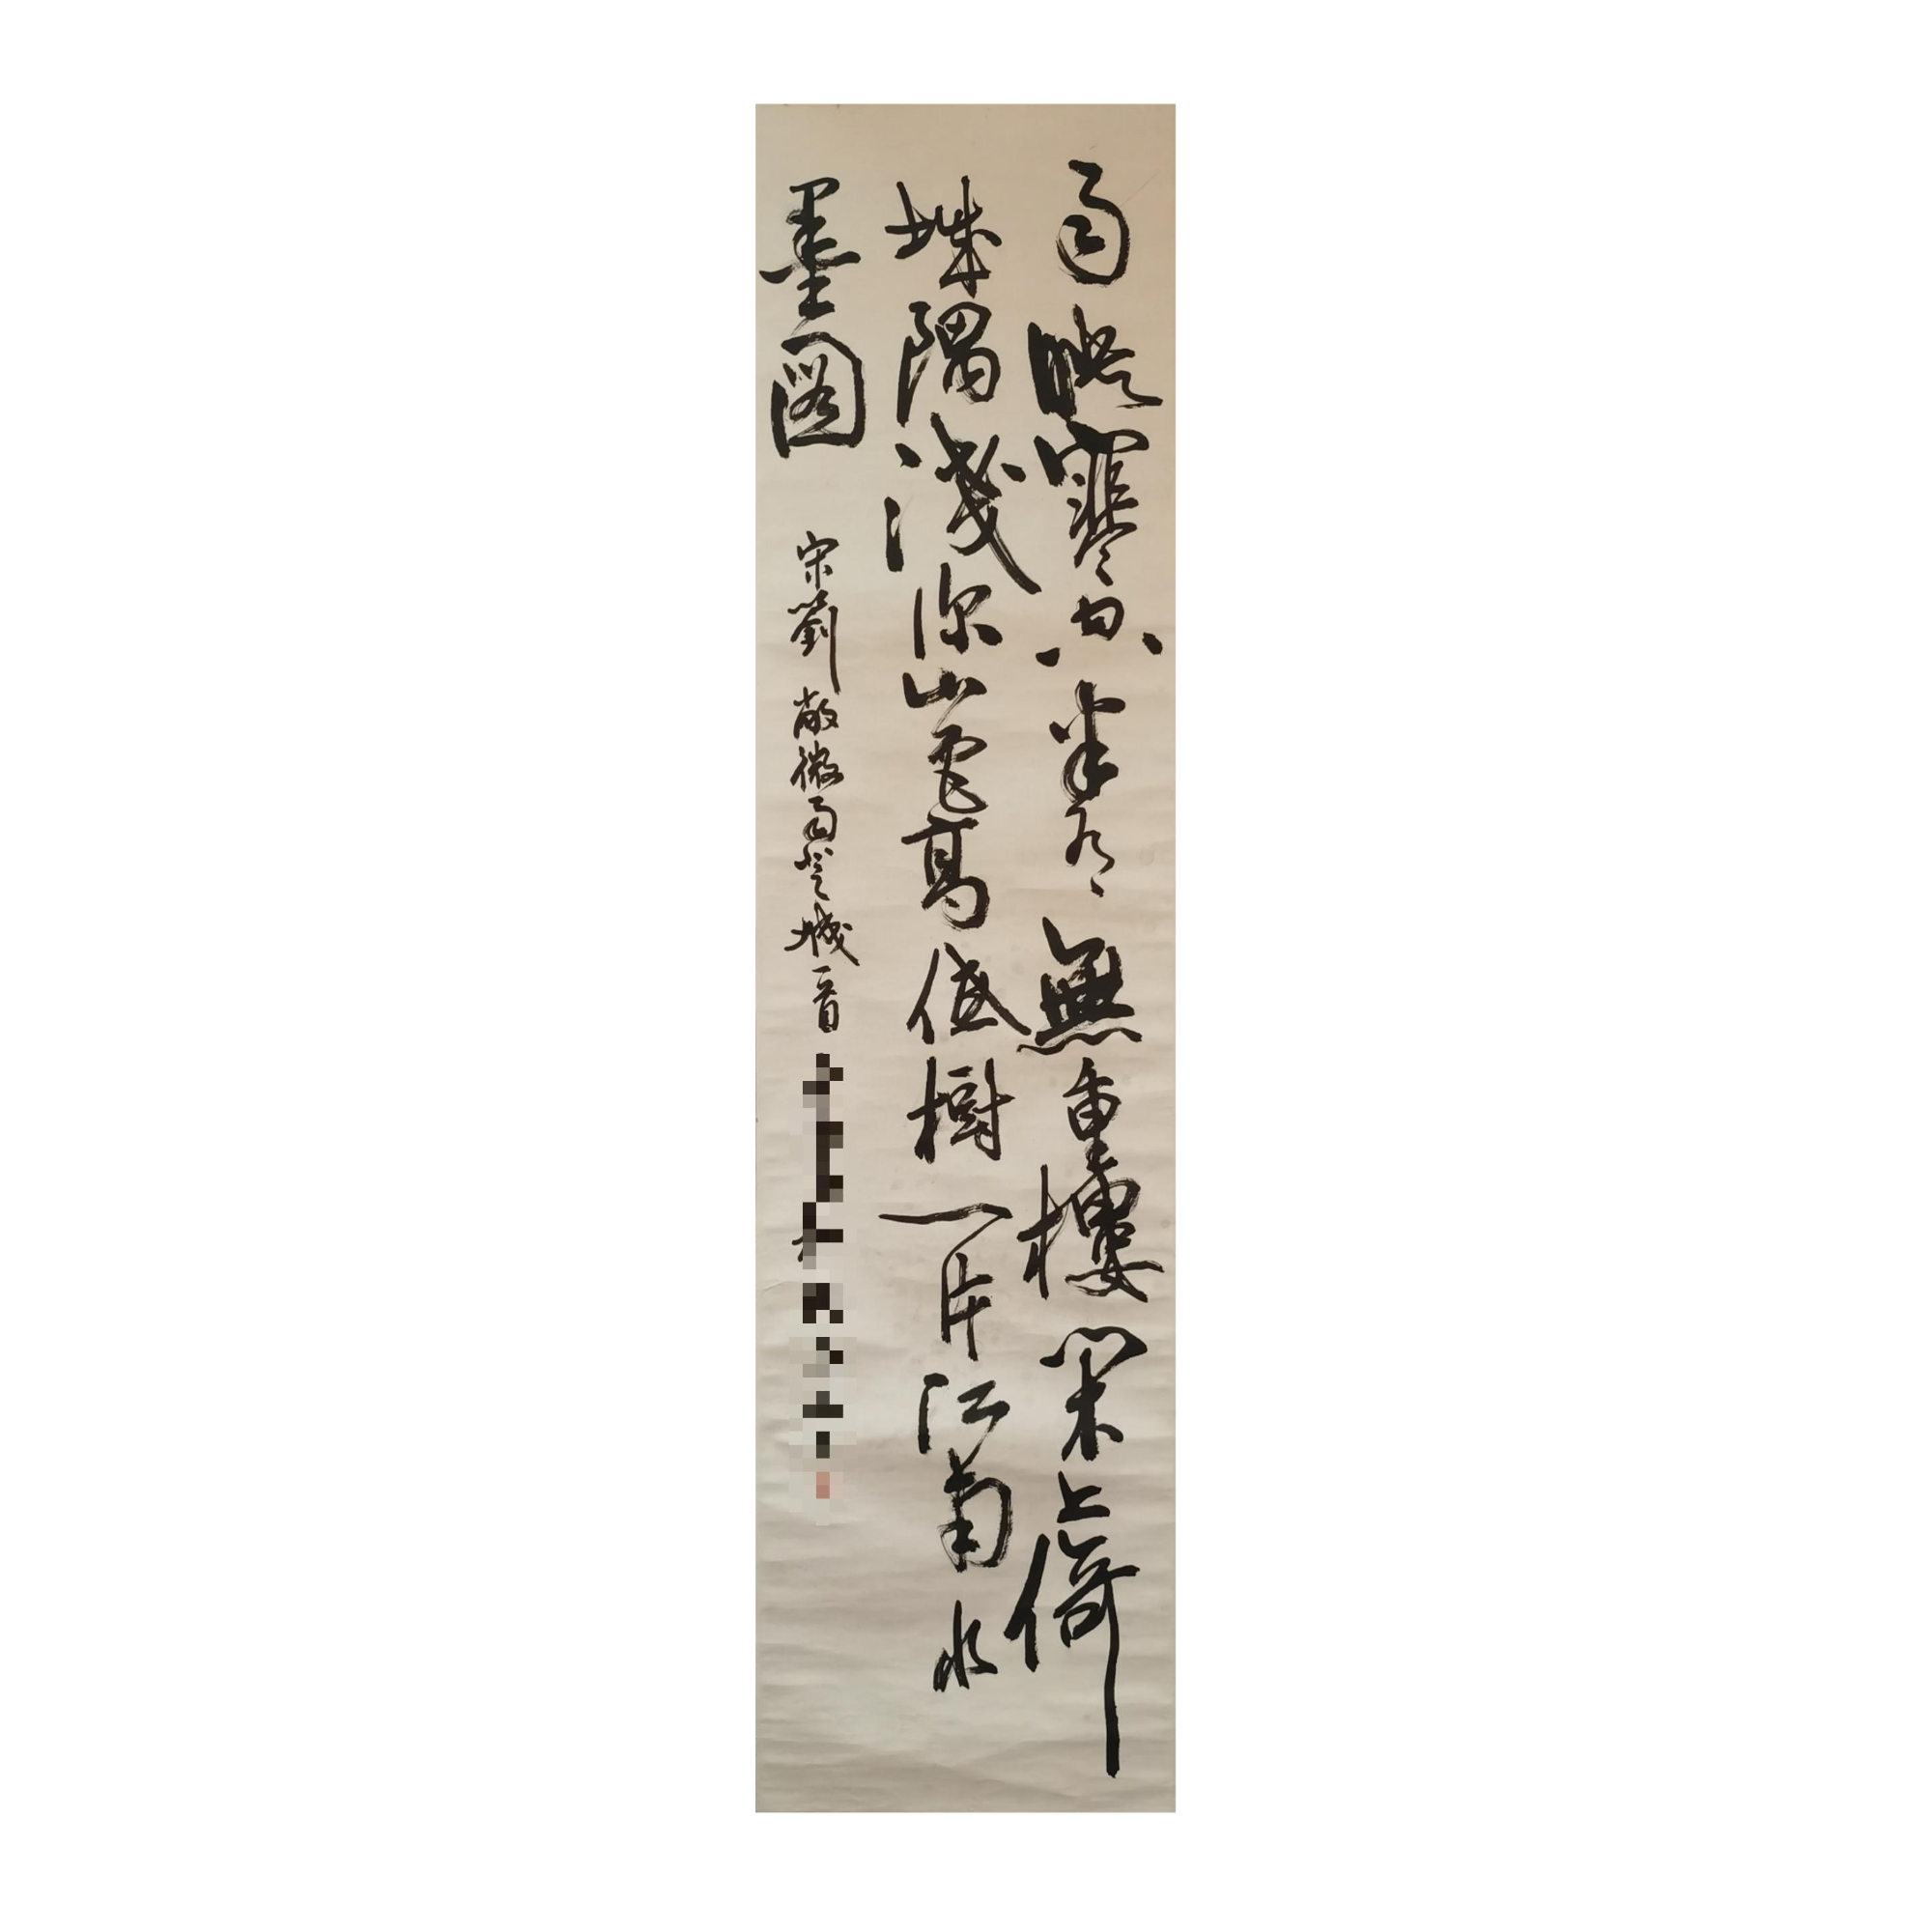 雨映寒空半有無重樓閑上倚
城隅淺深山色高低樹一片江南水
墨圖 宋劉敞微雨登城一首